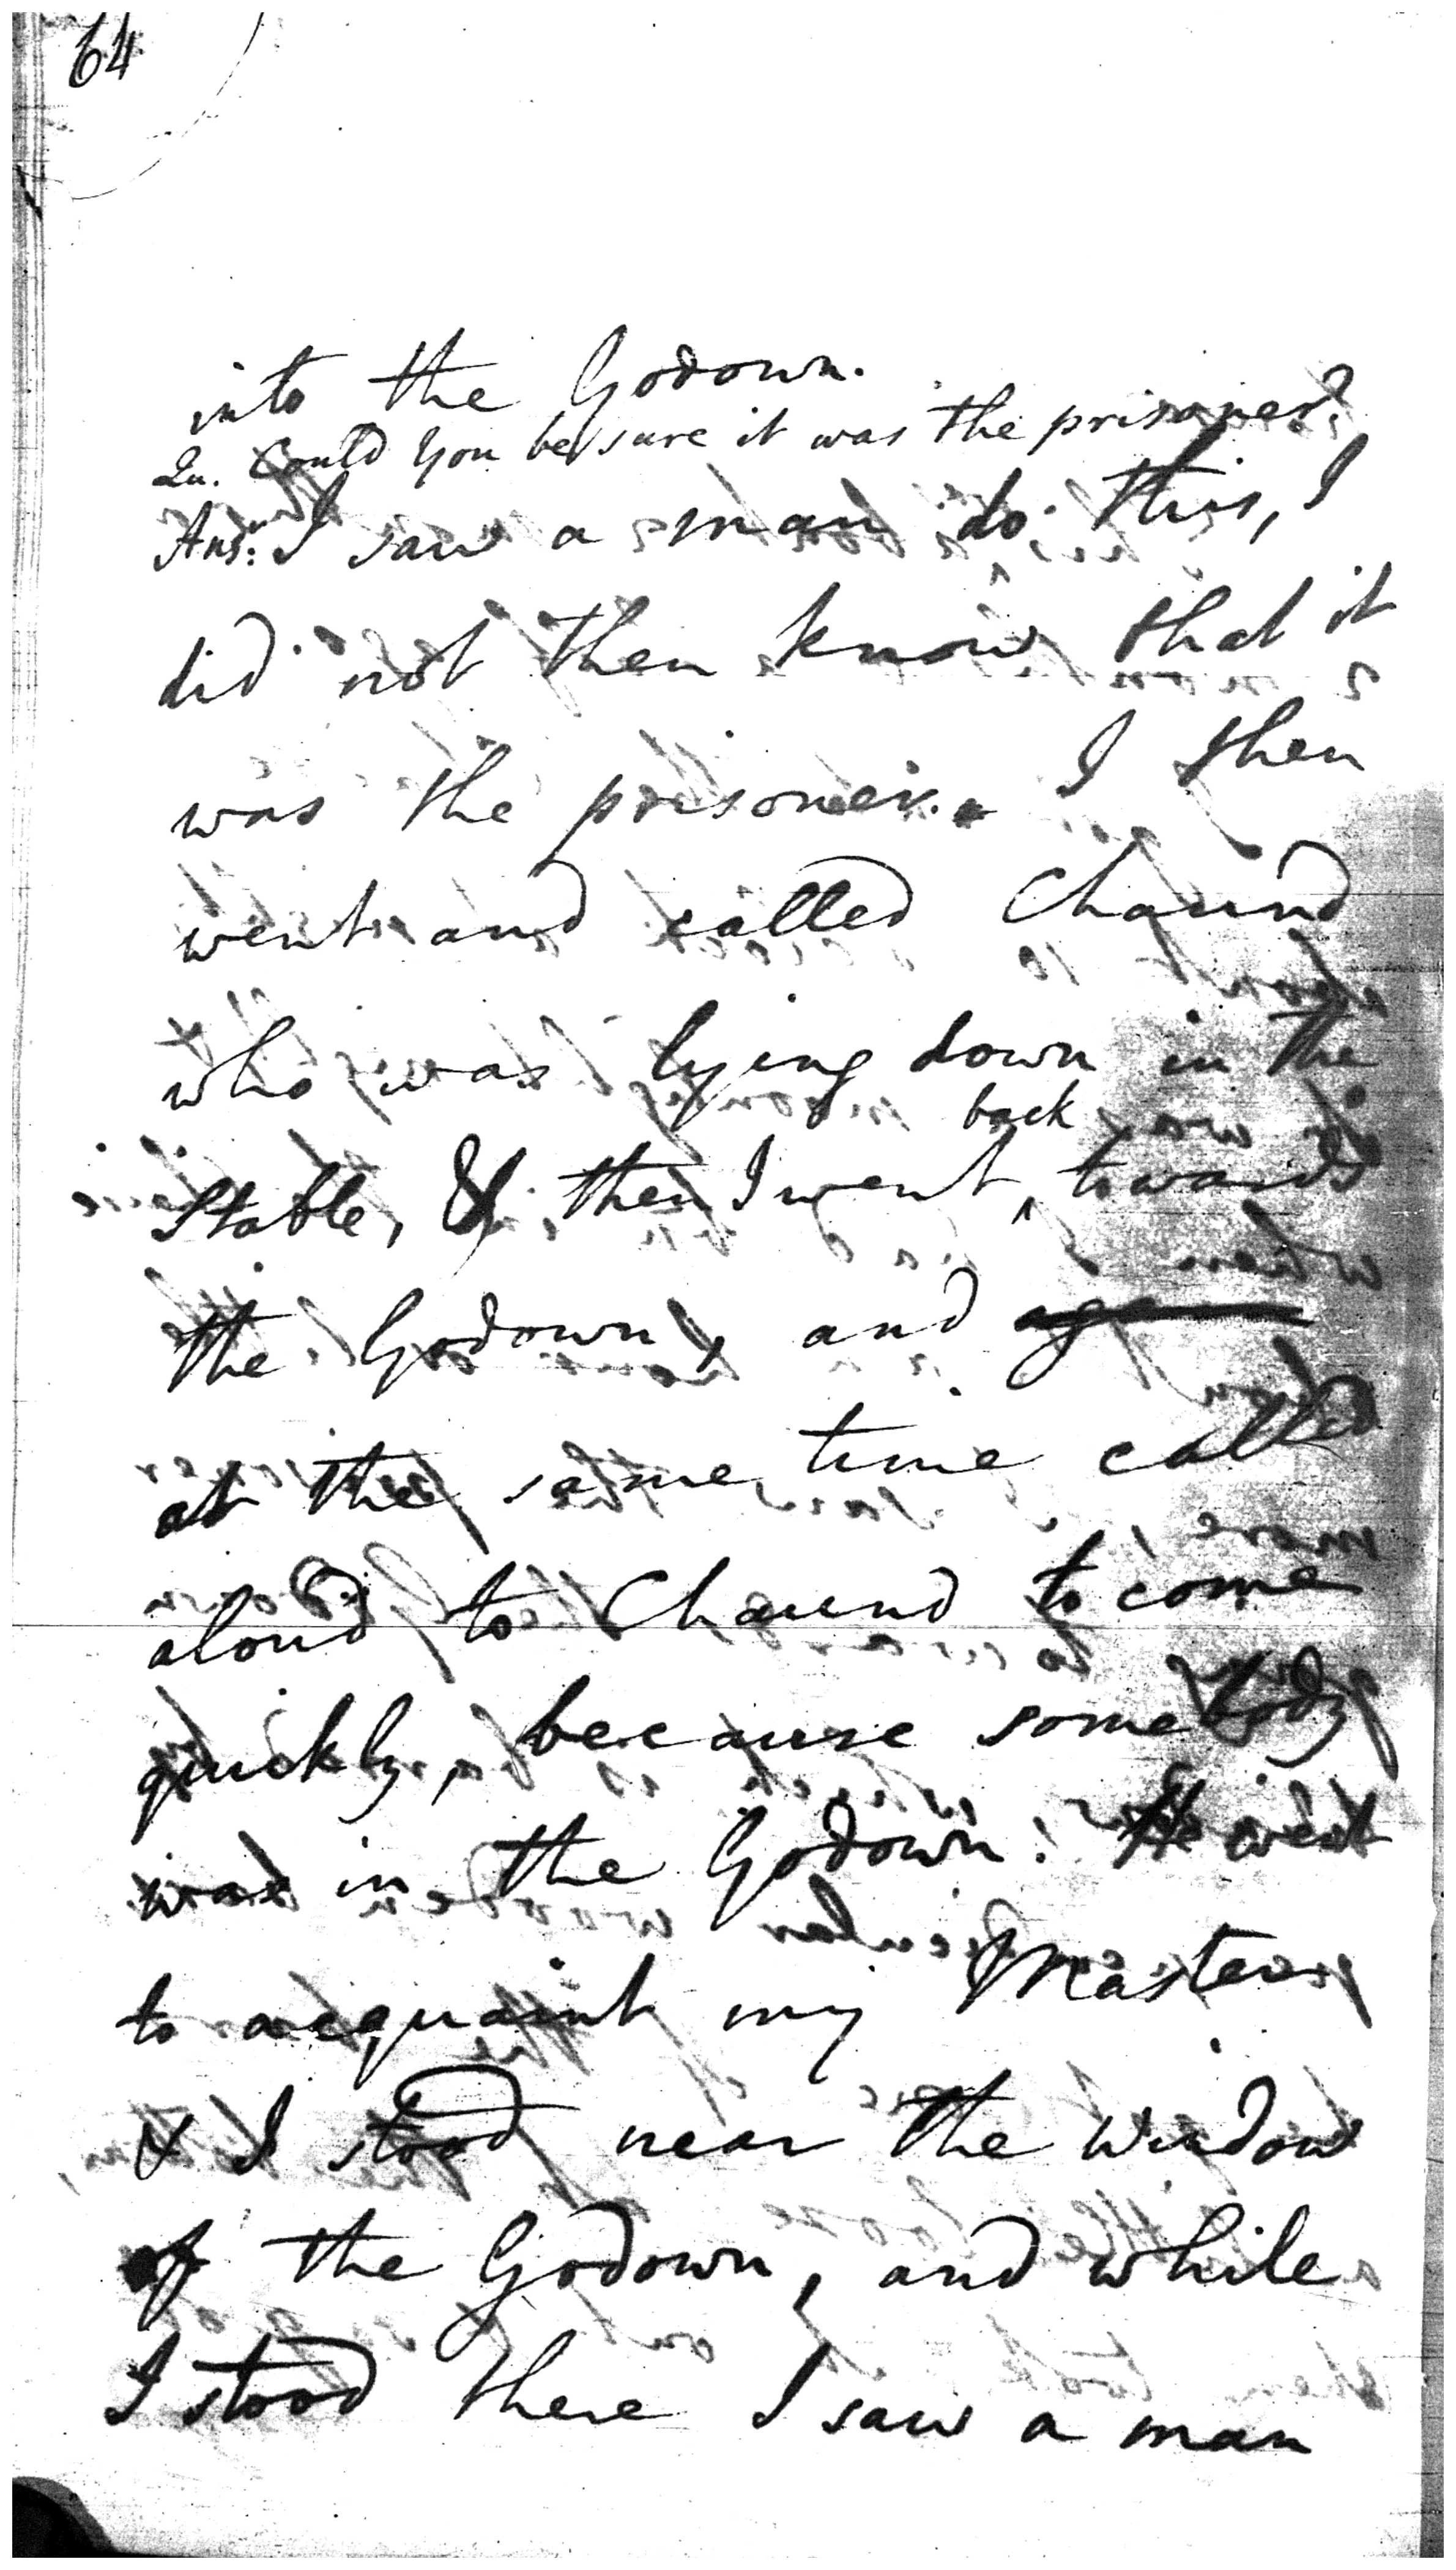 64
into the Godown.
Qu. Could you be sure it was the prisoner?
Ansr. I saw a man do this, I
did not then know that it
was the prisoner. I then
went and called Chaund
who was lying down in the
back
Stable, & then I went ‸ towards
the Godown, and
at the same time called
aloud to Chaund to come
quickly, because somebody
was in the Godown: He went
to acquaint my Master
& I stood near the window
of the Godown, and while
I stood there I saw a man